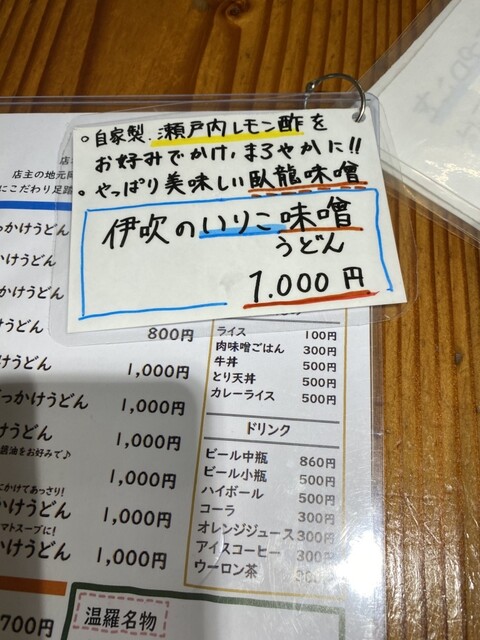 ○自家製.瀬戸内レモン酢を
お好みでかけ,まろやかに!!
○やっぱり美味しい臥龍味噌
伊吹のいりこ味噌
うどん
1.000円
店主の地元
にこだわり足蹟
っかけうどん
かけうどん
かけうどん
うどん 800円
けうどん 1,000円
っかけうどん 1,000円
けうどん 1,000円
醤油をお好みで♪
1,000円
にかけてあっさり!
かけうどん 1,000円
マトスープに!
かけうどん 1,000円
700円
ライス 100円
肉味噌ごはん 300円
牛丼 500円
とり天丼 500円
カレーライス 500円
ドリンク
ビール中瓶 860円
ビール小瓶 500円
ハイボール 500円
コーラ 300円
オレンジジュース 300円
アイスコーヒー 300円
ウーロン茶
温羅名物